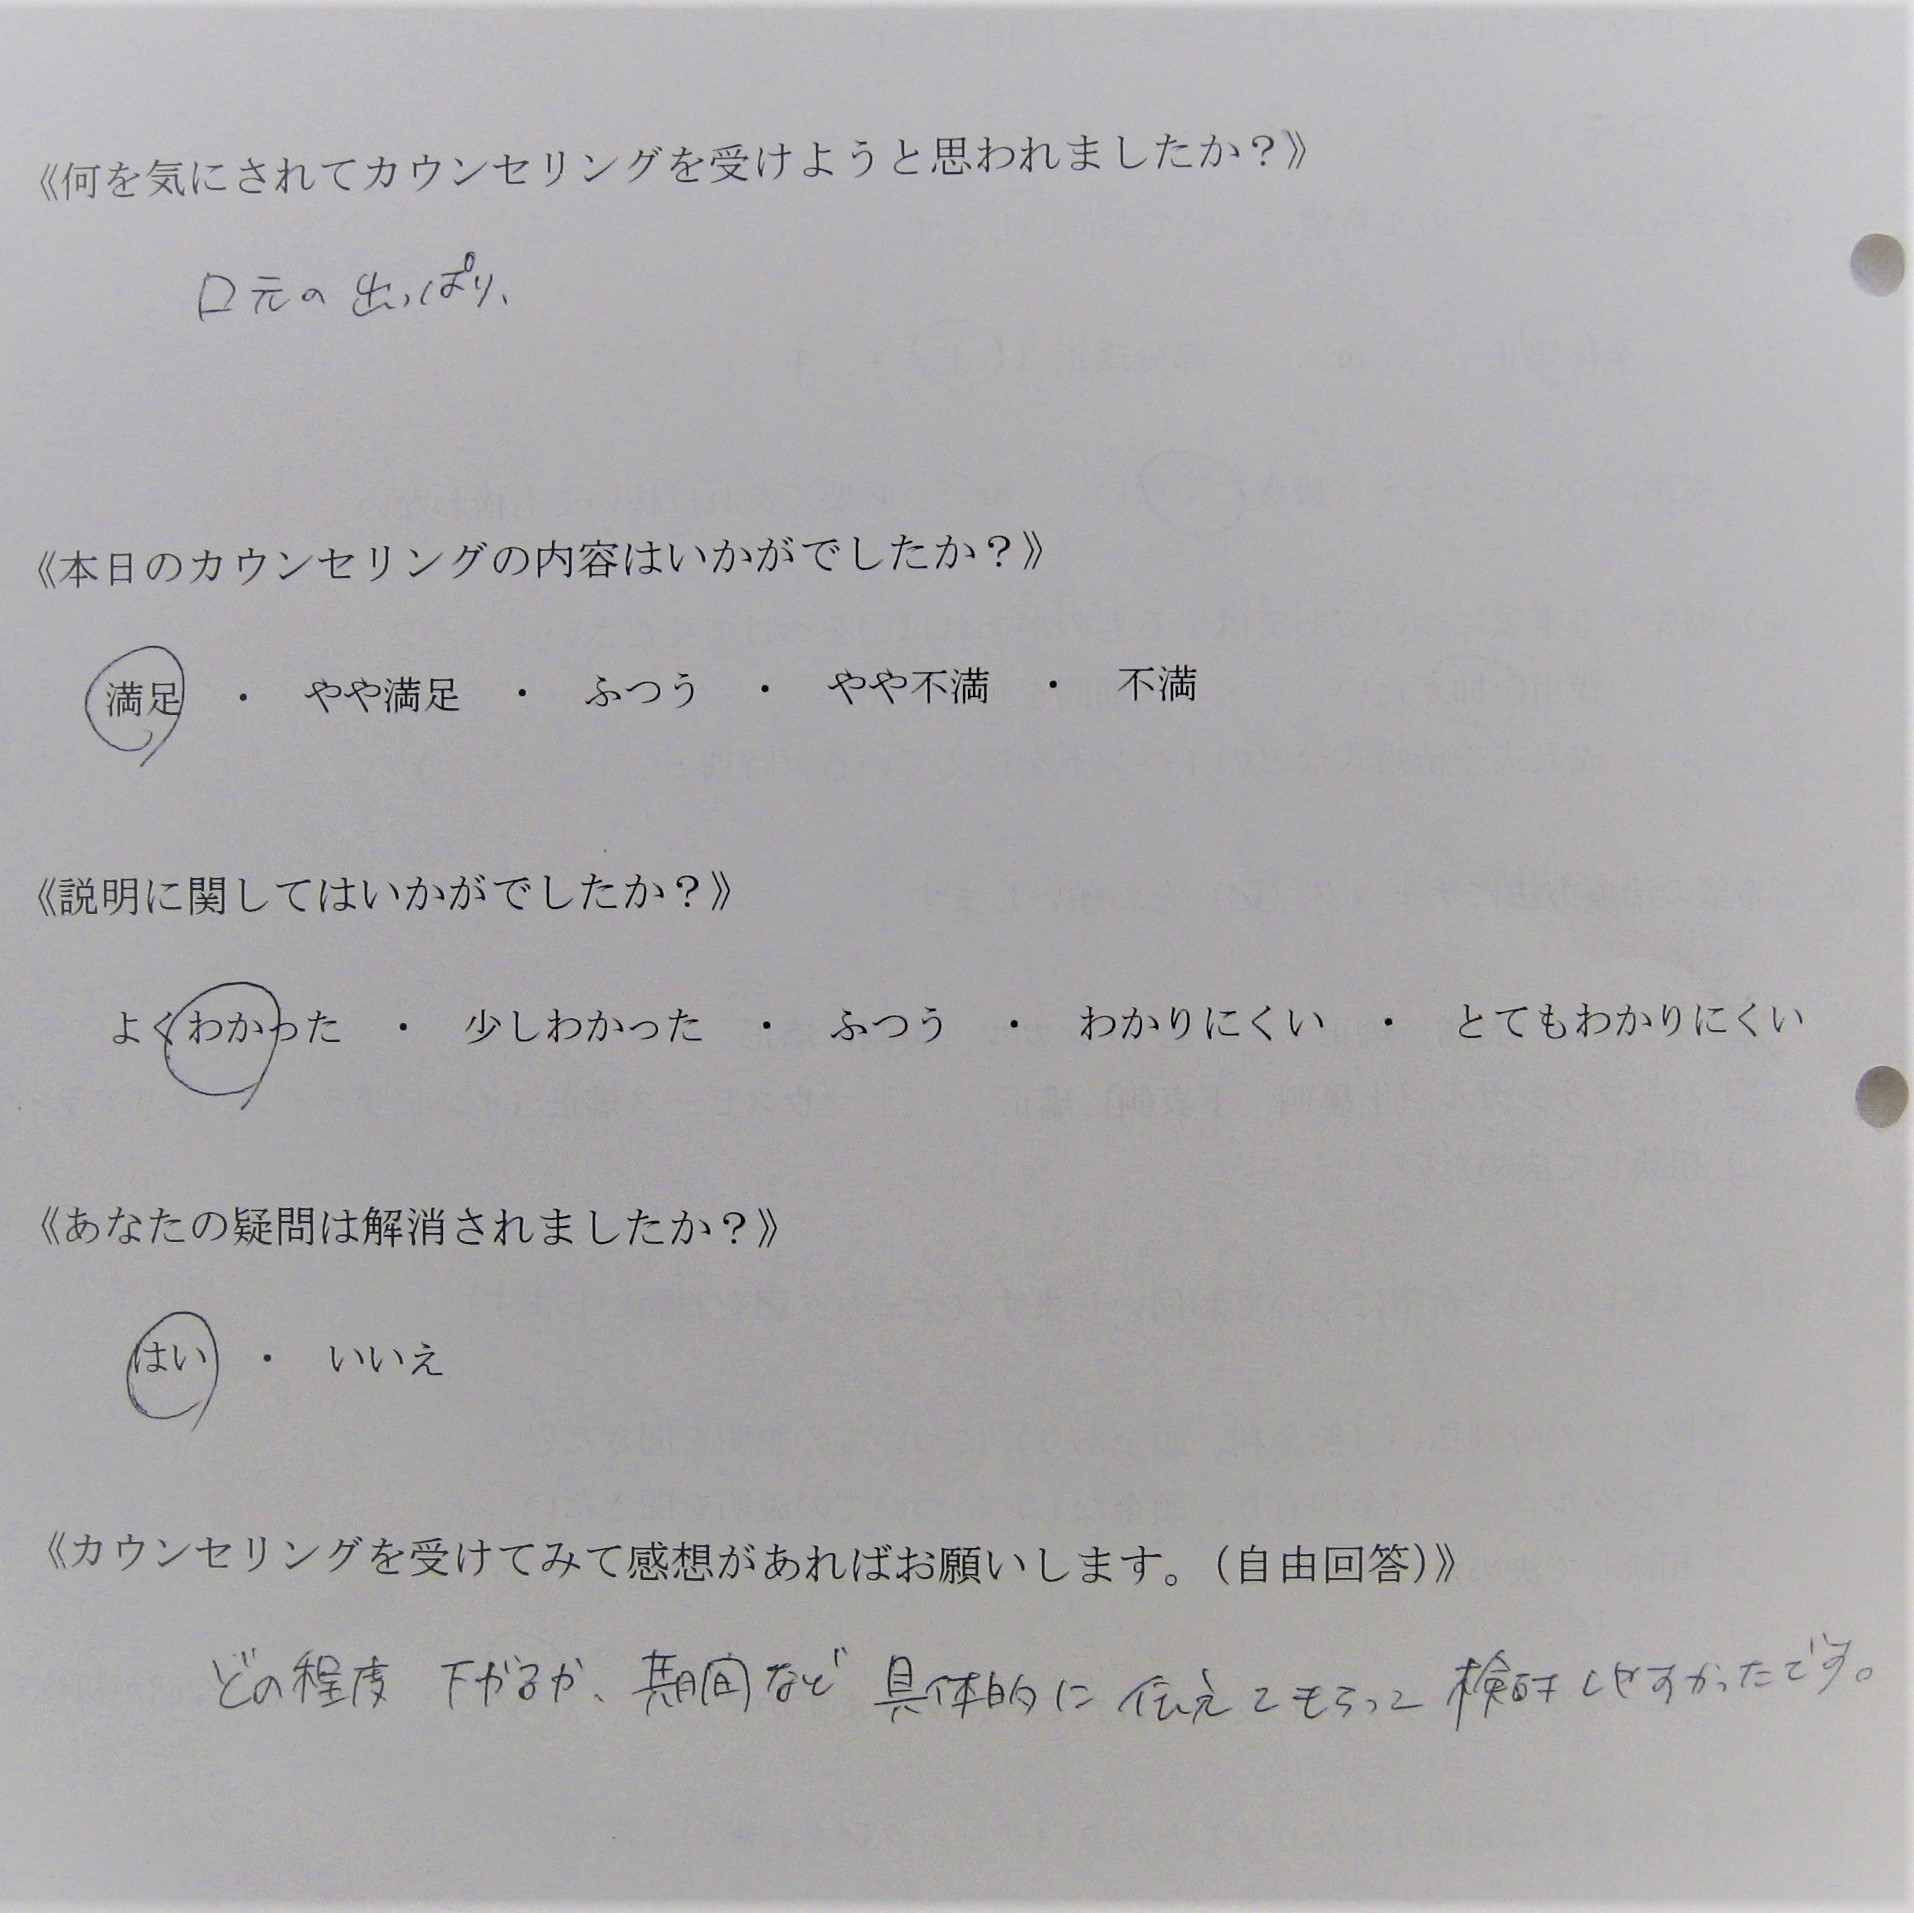 《何を気にされてカウンセリングを受けようと思われましたか？》
口元の出っぱり、
《本日のカウンセリングの内容はいかがでしたか？》
満足 ・ やや満足 ・ ふつう ・ やや不満 ・ 不満
《説明に関してはいかがでしたか？》
よくわかった ・ 少しわかった ・ ふつう ・ わかりにくい ・ とてもわかりにくい
《あなたの疑問は解消されましたか？》
はい ・ いいえ
《カウンセリングを受けてみて感想があればお願いします。（自由回答）》
どの程度 下がるか、期間など 具体的に 伝えてもらって 検討しやすかったです。